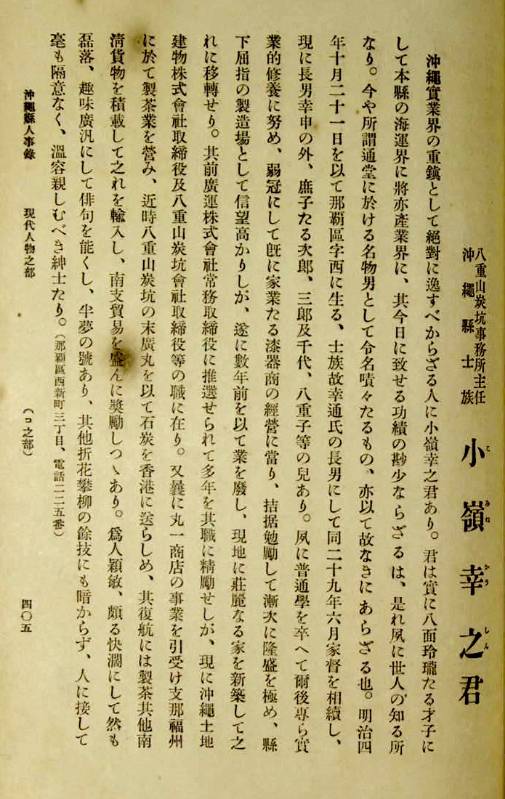 八重山炭坑事務所主任
沖繩縣士族
小嶺幸之君
こみねかうしん
沖繩實業界の重鎭として絕對に逸すべからざる人に小嶺幸之君あり。君は實に八面玲瓏たる才子に
して本縣の海運界に將亦產業界に、其今日に致せる功績の尠少ならざるは、是れ夙に世人の知る所
なり。今や所謂通堂に於ける名物男として令名嘖々たるもの、亦以て故なきにあらざる也。明治四
年十月二十一日を以て那覇區字西に生る、士族故幸通氏の長男にして同二十九年六月家督を相續し、
現に長男幸申の外、庶子たる次郞、三郞及千代、八重子等の兒あり。夙に普通學を卒へて爾後專ら實
業的修養に努め、弱冠にして旣に家業たる漆器商の經營に當り、拮据勉勵して漸次に隆盛を極め、縣
下屈指の製造場として信望高かりしが、遂に數年前を以て業を廢し、現地に莊麗なる家を新築して之
れに移轉せり。其前廣運株式會社常務取締役に推選せられて多年を其職に精勵せしが、現に沖繩土地
建物株式會社取締役及八重山炭坑會社取締役等の職に在り。又曩に丸一商店の事業を引受け支那福州
に於て製茶業を營み、近時八重山炭坑の末廣丸を以て石炭を香港に送らしめ、其復航には製茶其他南
淸貨物を積載して之れを輸入し、南支貿易を盛んに獎勵しつゝあり。爲人穎敏、頗る快濶にして然も
磊落、趣味廣汎にして俳句を能くし、半夢の號あり、其他折花攀柳の餘技にも暗からず、人に接して
毫も隔意なく、溫容親しむべき紳士たり。(那覇區西新町三丁目、電話二二五番)
沖繩縣人事錄 現代人物之部 (コ之部) 四〇五